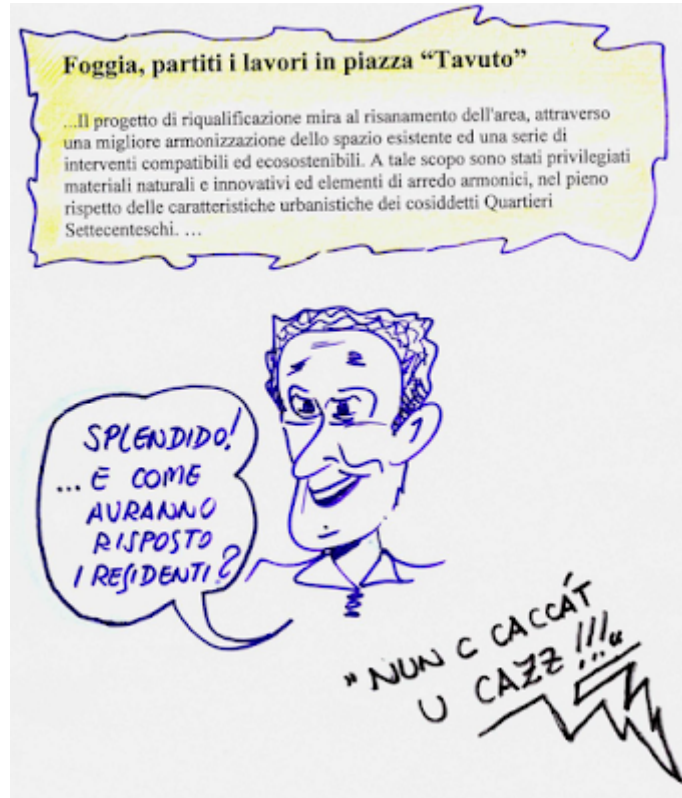 Foggia, partiti i lavori in piazza “Tavuto”
...Il progetto di riqualificazione mira al risanamento dell'area, attraverso
una migliore armonizzazione dello spazio esistente ed una serie di
interventi compatibili ed ecosostenibili. A tale scopo sono stati privilegiati
materiali naturali e innovativi ed elementi di arredo armonici, nel pieno
rispetto delle caratteristiche urbanistiche dei cosiddetti Quartieri
Settecenteschi. ...
SPLENDIDO!
... E COME
AVRANNO
RISPOSTO
I RESIDENTI?
"NUN C CACCÁT
U CAZZ !!!..."